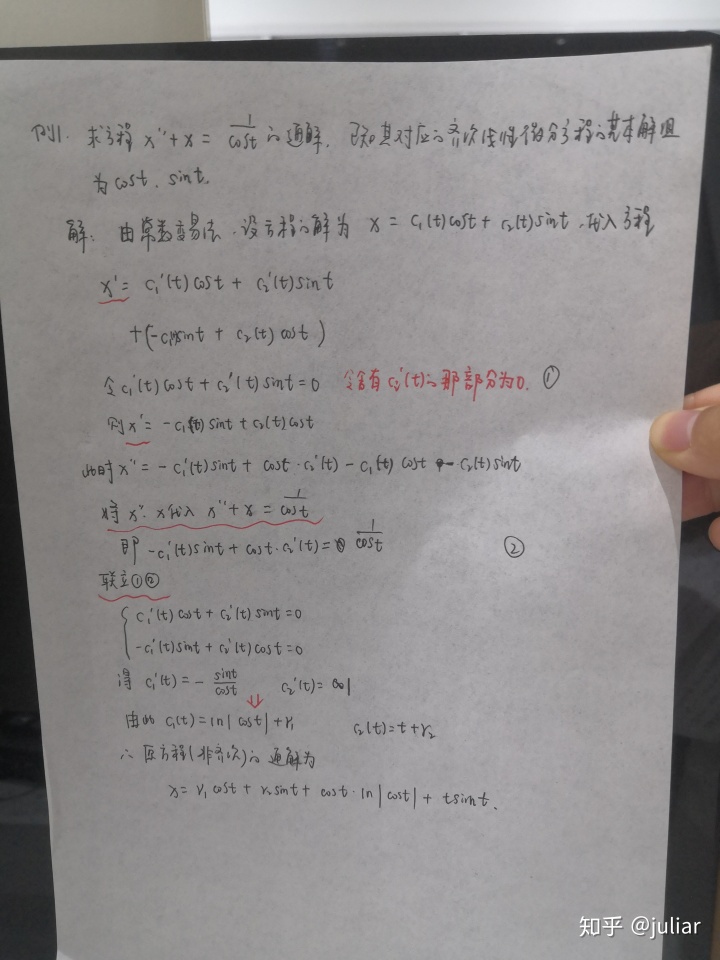 例1. 求方程 x''+x = 1/cost 的通解. 已知其对应的齐次线性微分方程的基本解组
为 cost, sint.
解: 由常数变易法,设方程的解为 x = c₁(t)cost + c₂(t)sint,代入方程
x' = c₁'(t)cost + c₂'(t)sint
+(-c₁(t)sint + c₂(t)cost)
令c₁'(t)cost + c₂'(t)sint = 0 令含有cᵢ'(t)的那部分为0. ①
则x' = -c₁(t)sint + c₂(t)cost
此时x'' = -c₁'(t)sint + cost·c₂'(t) - c₁(t)cost - c₂(t)sint
将x''. x代入 x''+x = 1/cost
即 -c₁'(t)sint + cost·c₂'(t) = 1/cost ②
联立①②
{ c₁'(t)cost + c₂'(t)sint = 0
-c₁'(t)sint + c₂'(t)cost = 0
得 c₁'(t) = - sint/cost c₂'(t) = 1
由此 c₁(t) = ln|cost| + γ₁ c₂(t) = t + γ₂
∴ 原方程(非齐次)的通解为
x = γ₁cost + γ₂sint + cost·ln|cost| + tsint.
知乎 @juliar